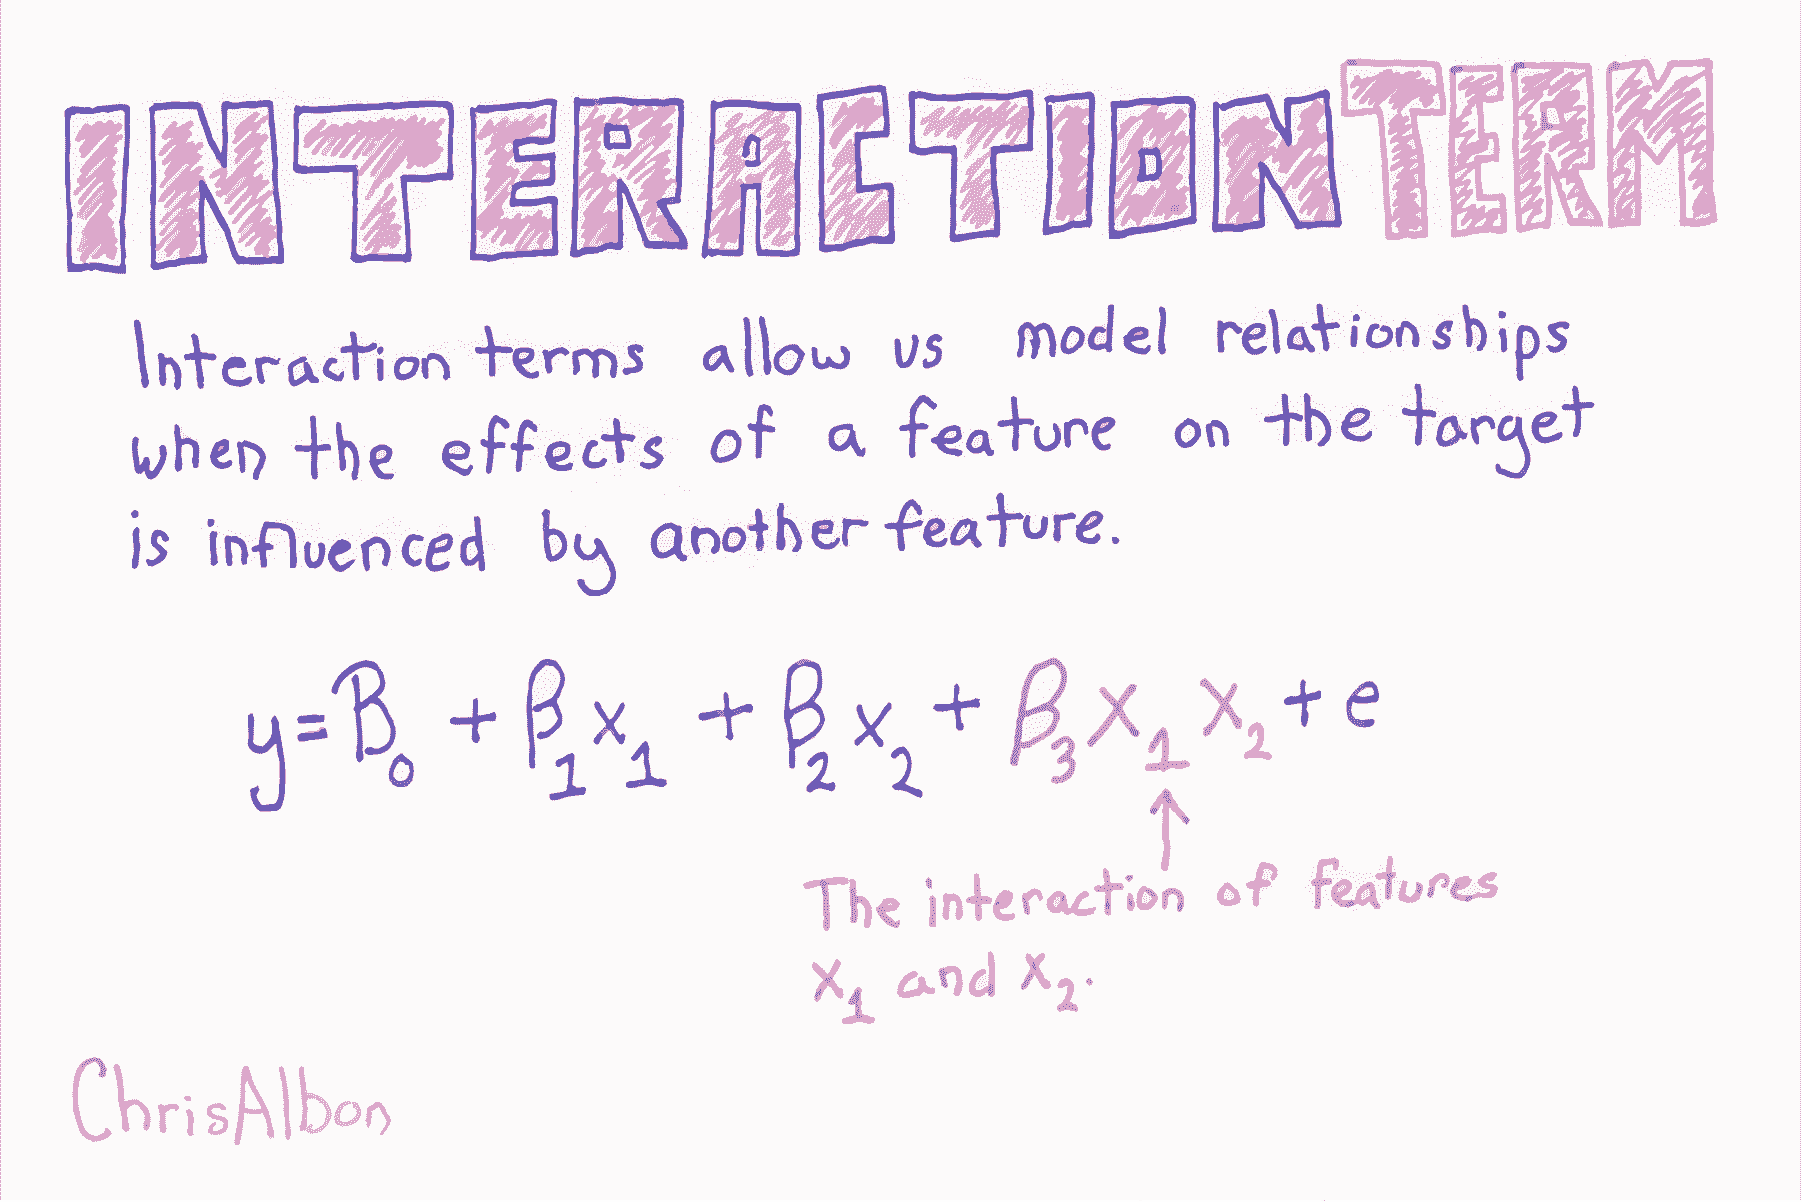 INTERACTION TERM
Interaction terms allow us model relationships
when the effects of a feature on the target
is influenced by another feature.
y = β₀ + β₁x₁ + β₂x₂ + β₃x₁x₂ + e
The interaction of features
x₁ and x₂.
ChrisAlbon